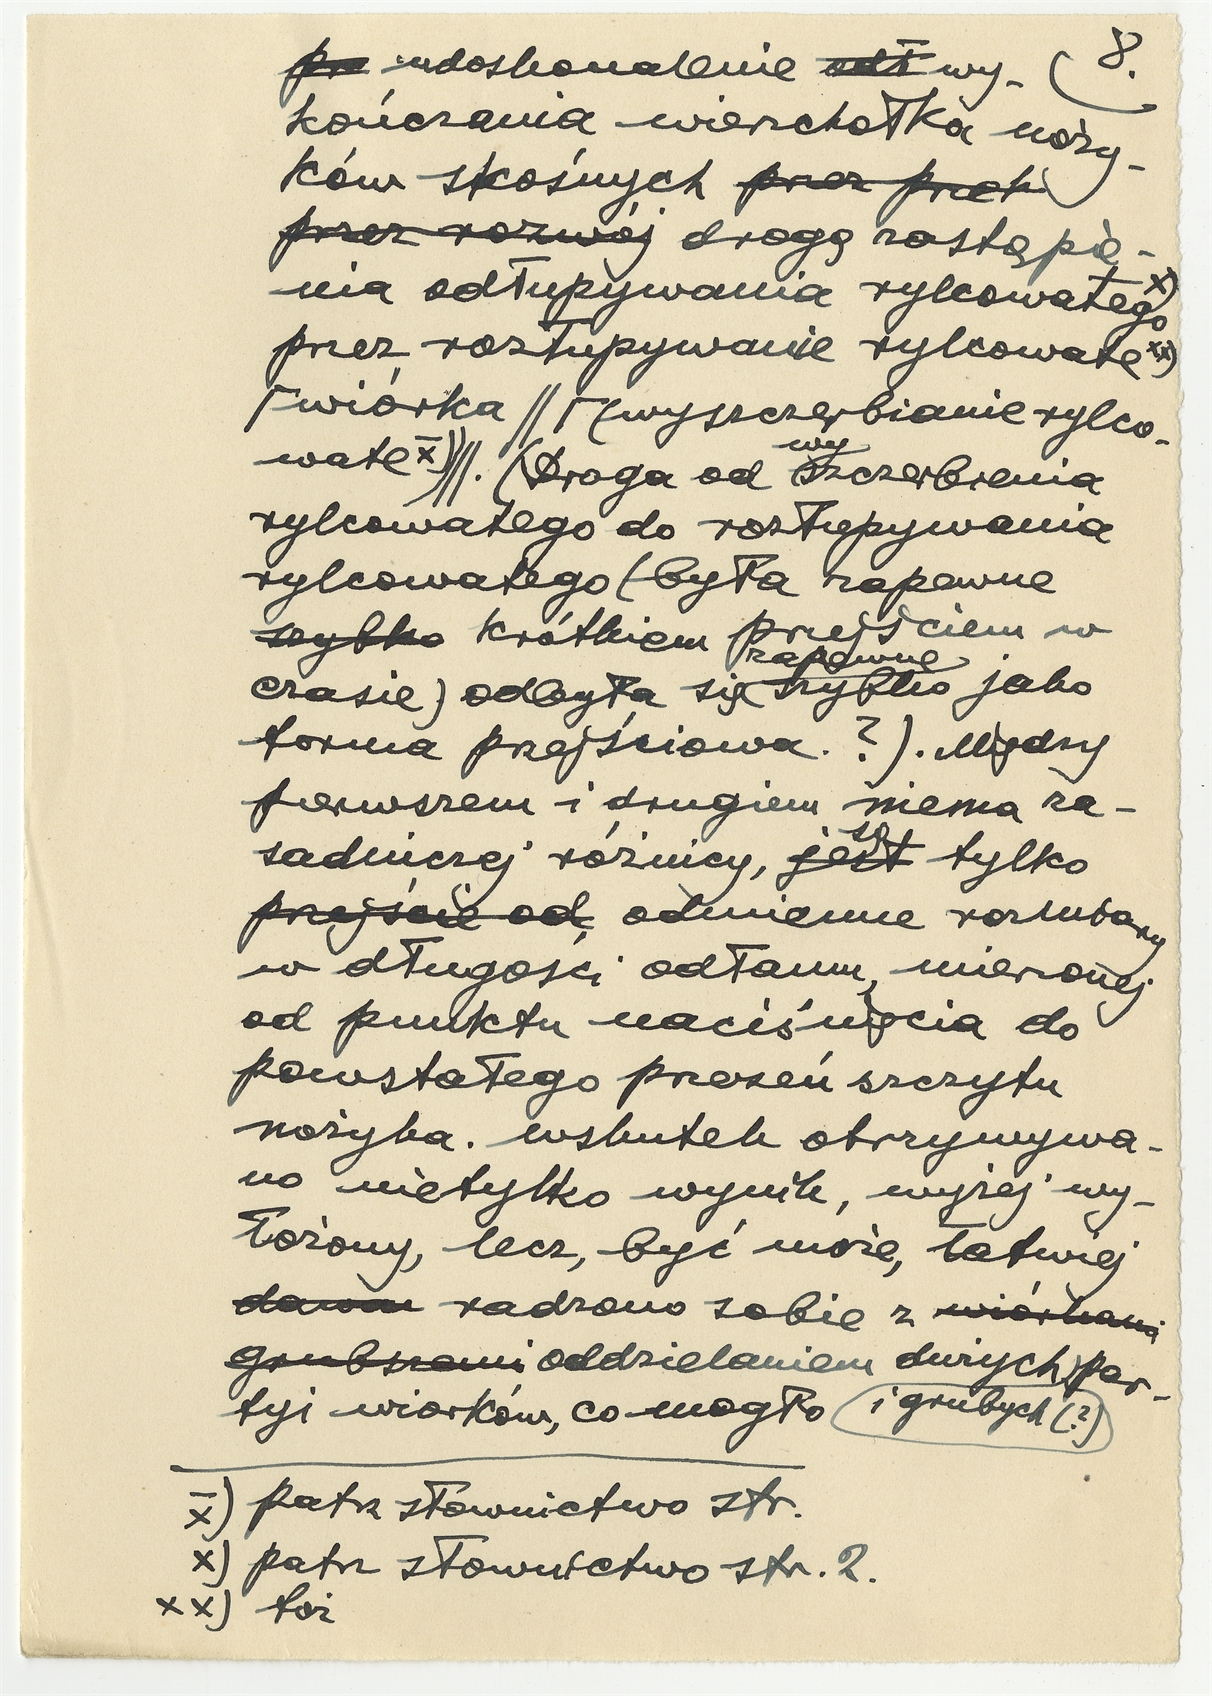 8.
pr udoskonalenie odł wy-
kończania wierzchołka noży-
ków skośnych przez przek
przez rozwój drogą zastąpie-
nia odłupywania rylcowatego x)
przez rozłupywanie rylcowate xx)
wiórka // (wyszczerbianie rylco-
wate x̄)//. (Droga od wy szczerbienia
rylcowatego do rozłupywania
rylcowatego (była zapewne
szybko krótkiem przejściem w
zapewne
czasie) odbyła się szybko jako
forma przejściowa. ?). Między
pierwszem i drugiem niema za-
są
sadniczej różnicy, jest tylko
przejście od odmienne rozmiary
w długości odłamu, mierzonej
od punktu naciśnięcia do
powstałego przezeń szczytu
nożyka. Wskutek otrzymywa-
no nietylko wynik, wyżej wy-
łożony, lecz, być może, łatwiej
dawan radzono sobie z wiórkami
grubszemi oddzielaniem dużych par-
tyi wiórków, co mogło i grubych (?)
x̄) patrz słownictwo str.
x) patrz słownictwo str. 2.
xx) toż